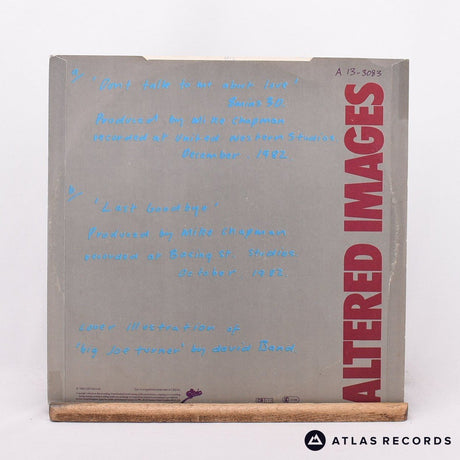 A 13-3083
a/ "Don't talk to me about love"
3mins 34
Produced by Mike Chapman
recorded at Britannia Northern Studios
December 1982
b/
"Last Goodbye"
Produced by Mike Chapman
recorded at Basing St. Studios
October, 1982.
cover illustration of
'big Joe turner' by david Band.
ALTERED IMAGES
ATLAS RECORDS